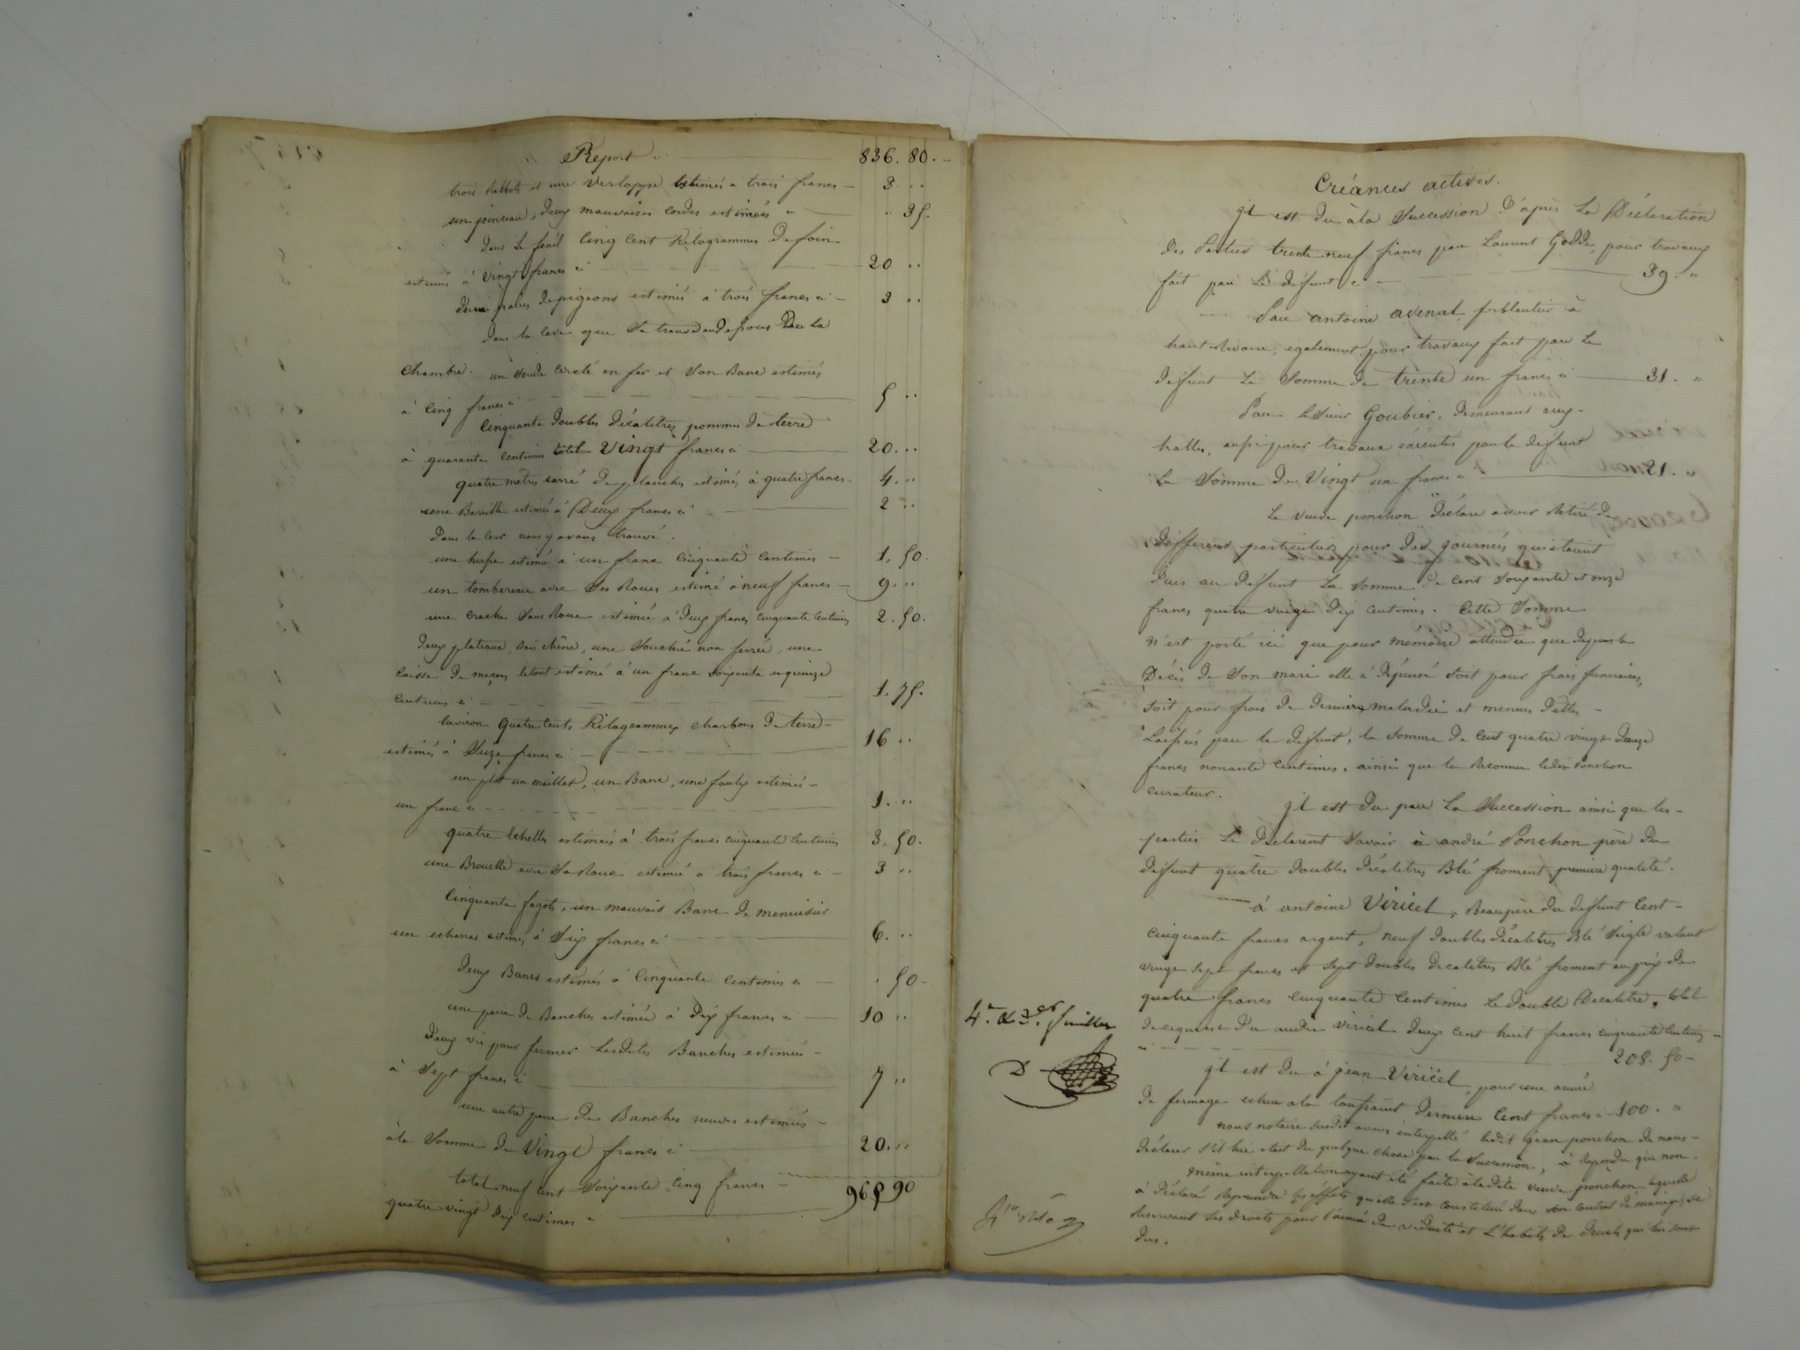 Report 836. 80.
trois Rabbots et une Varloppe Estimés a trois francs 3 ..
un pinceau, Deux mauvaises cordes estimées 35.
Dans le fenil Cinq Cent Kilogrammes De foin
estimés à Vingt francs ci 20 ..
deux paires De pigeons estimés à trois francs ci 3 ..
Dans la cave qui Se trouve au Dessous De La
Chambre. un cercle en fer et Son Banc estimés
à Cinq francs ci 5 ..
Cinquante Doubles Décalitres pommes De terre
à quarante Centimes total Vingt francs ci 20 ..
quatre mètres carré De planches estimés à quatre francs. 4. ..
une estimée à Deux francs ci 2 ..
Dans la Cour nous y avons trouvé.
une herse estimée à un franc Cinquante Centimes 1. 50.
un tombereau avec Ses Roues estimé à neuf francs 9. ..
une Sans Roue estimée à Deux francs cinquante Centimes 2. 50.
Deux plateaux, Bois chêne, une non ferrée, une
caisse De maçon letout estimé à un franc soixante et quinze
Centimes ci 1. 75.
Environ quatre Cents Kilogrammes charbons De terre
estimés à Seize francs ci 16 ..
un un Banc, une faulx estimés
un franc ci 1. ..
quatre Echelles estimées à trois francs cinquante Centimes 3. 50.
une Brouette avec Sa Roue estimée à trois francs ci 3 ..
Cinquante fagots, un mauvais Banc De menuisier
un estimés à Six francs ci 6. ..
Deux Bancs estimés à Cinquante Centimes ci 50
une paire De Banches estimée à Dix francs ci 10 ..
Deux vis pour fermer Lesdites Banches estimées
à Sept francs ci 7 ..
une autre paire De Banches neuves estimées
à la Somme De Vingt francs ci 20. ..
total neuf Cent Soixante Cinq francs
quatre vingt Dix centimes ci 965 90
Créances actives.
jl est Du à la Succession D'après La Déclaration
Des Parties trente neuf francs par Laurent Godde, pour travaux
fait par Le Défunt ci 39. "
Par antoine avenat ferblantier à
haut-Rivoire, egalement pour travaux fait par Le
Défunt La Somme De trente un francs ci 31. "
Par le Sieur Goubier. Demeurant aux
halles, aussi pour travaux éxécutés par le Défunt
La Somme De Vingt un francs ci 21. "
La veuve ponchon Déclare avoir Retiré De
Differents particuliers pour Des journées qui étaient
Dues au Défunt La Somme De Cent Soixante et onze
francs quatre vingt Dix Centimes. Cette Somme
n'est porté ici que pour mémoire attendu que Depuis le
Décès De Son mari elle à Dépensé Soit pour frais funéraires,
Soit pour frais De Dernière maladie et menues Dettes
Laissées par le Défunt, la Somme De Cent quatre vingt Douze
francs nonante Centimes. ainsi que la Reconnu ledit Ponchon
curateur.
jl est Du par La Succession ainsi que les
parties Le Déclarent Savoir à andré Ponchon père Du
Défunt quatre Doubles Décalitres Blé froment, première qualité.
à antoine Viricel, Beaupère du Défunt Cent
Cinquante francs argent, neuf Doubles Décalitres Blé Seigle valant
vingt Sept francs et Sept Doubles Décalitres Blé froment au prix De
quatre francs Cinquante Centimes Le Double Décalitre, total
De ce qui est Du audit Viricel Deux Cent huit francs cinquante Centimes
ci 208. 50
jl est Du à jean Viricel, pour une année
De fermage echue a la toussaint Dernière Cent francs ci 100. "
nous notaire Susdit avons interpellé ledit jean ponchon De nous
Déclarer S'il lui etait Du quelque chose par la Succession, à Répondu que non.
même interpellation ayant été faite à ladite veuve ponchon, laquelle
à Déclaré Reprendre les effets qu'elle S'est constituée Dans Son Contrat De mariage, Se
Réservant Ses Droits pour l'année De viduité et L'habits De Deuil, qui lui sont
Dus.
4e & 3er feuillet
D